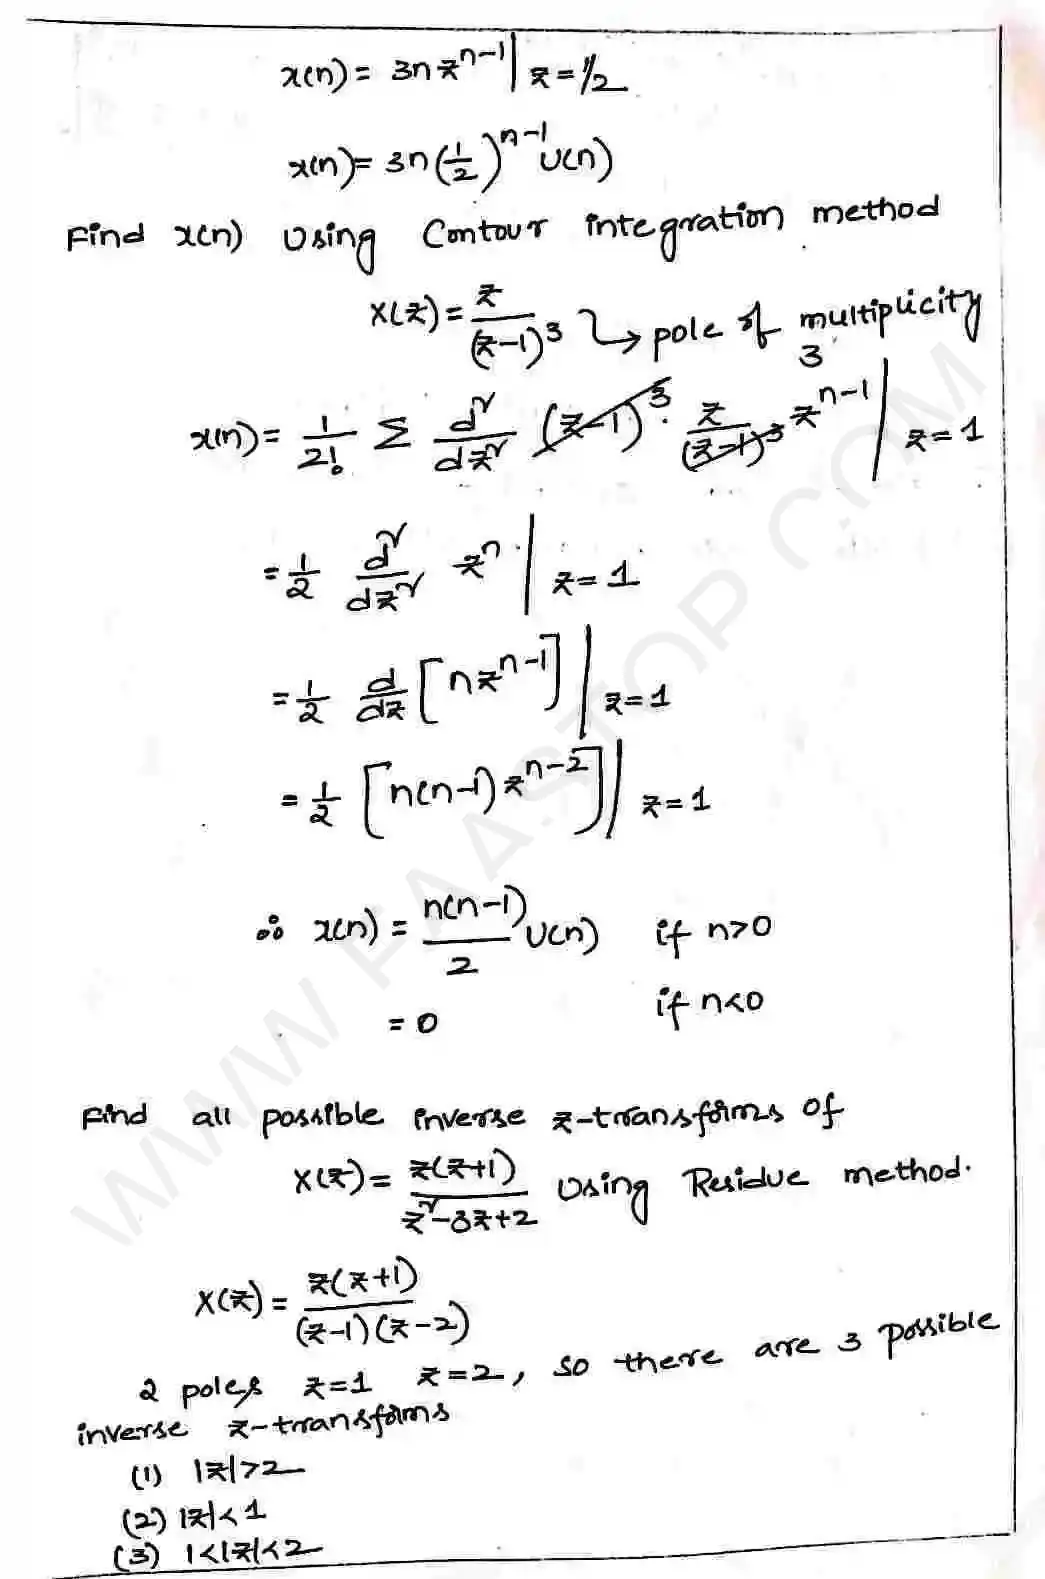 x(n) = 3n z^{n-1} | z = 1/2
x(n) = 3n (1/2)^{n-1} U(n)
Find x(n) Using Contour integration method
X(z) = z/(z-1)^3 → pole of multiplicity 3
x(n) = 1/2! Σ d²/dz² (z-1)^3 · z/(z-1)^3 z^{n-1} | z = 1
= 1/2 d²/dz² z^n | z = 1
= 1/2 d/dz [n z^{n-1}] | z = 1
= 1/2 [n(n-1) z^{n-2}] | z = 1
∴ x(n) = n(n-1)/2 U(n) if n>0
= 0 if n<0
Find all possible inverse z-transforms of
X(z) = z(z+1)/z²-3z+2 Using Residue method.
X(z) = z(z+1)/(z-1)(z-2)
2 poles z=1 z=2, so there are 3 possible
inverse z-transforms
(1) |z|>2
(2) |z|<1
(3) 1<|z|<2
WWW.FAASTOP.COM